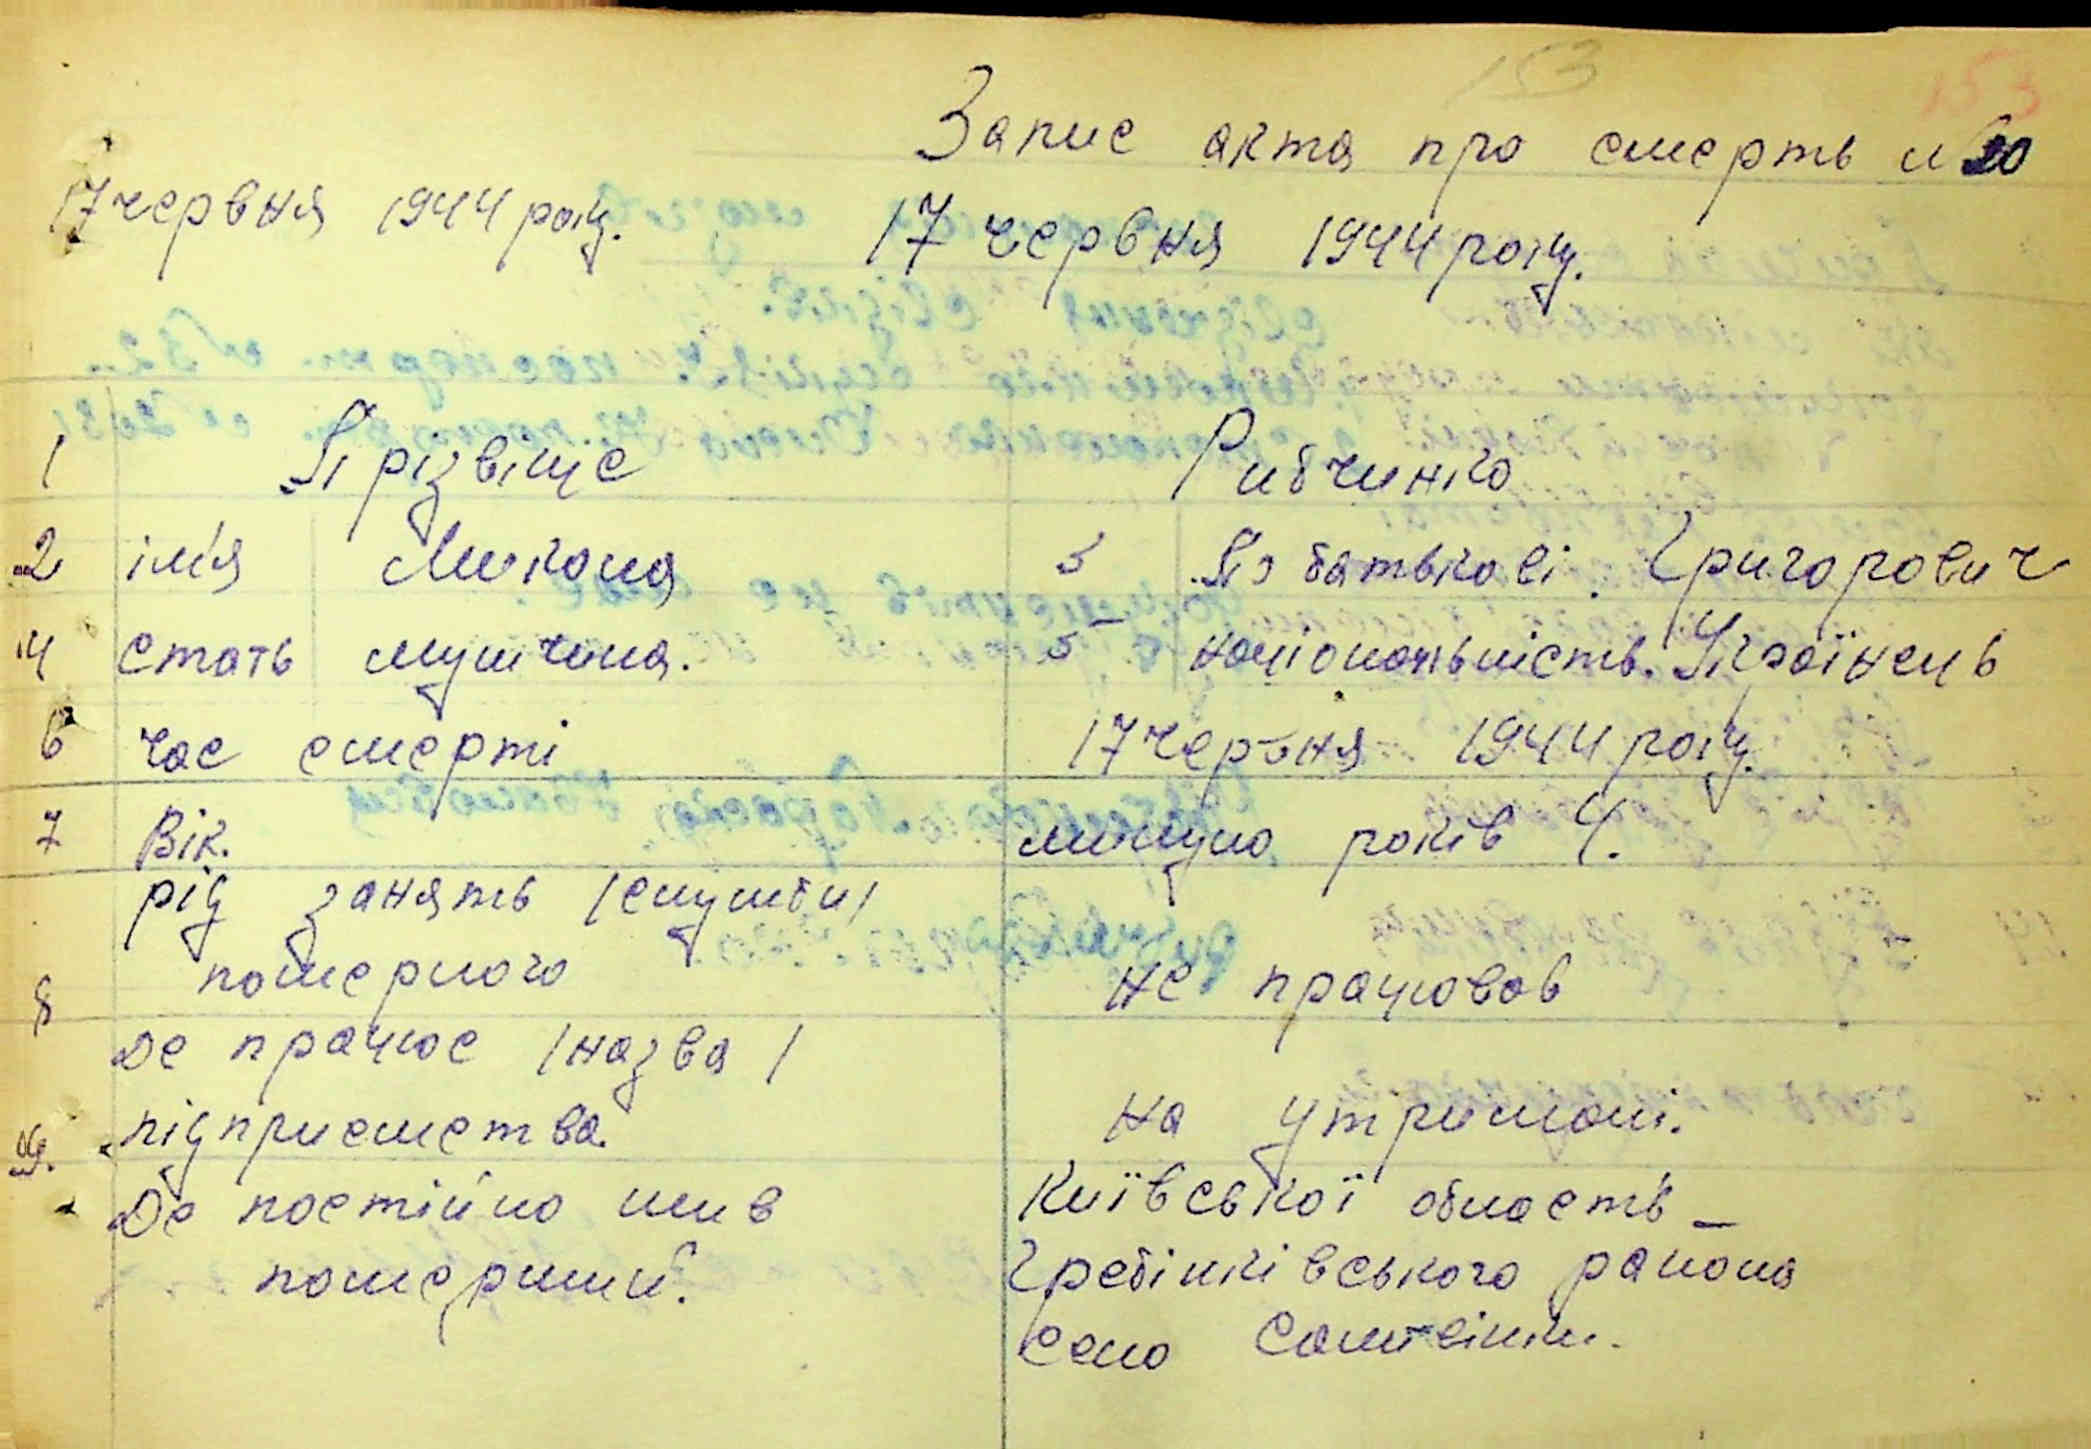 153 153
Запис акта про смерть №20
17 червня 1944 року. 17 червня 1944 року.
1 Прізвіще Рибчинко
2 ім'я Микола 3 По батькові. Григорович
4 стать мушчина. 5 національність. Українець
6 час смерті 17 червня 1944 року.
7 Вік. минуло років 4.
рід занять /служби/
8 померлого не працював
Де працює /назва/
9. підприємства. на утримані.
Де постійно жив Київської область –
померший. Гребінківського района
село